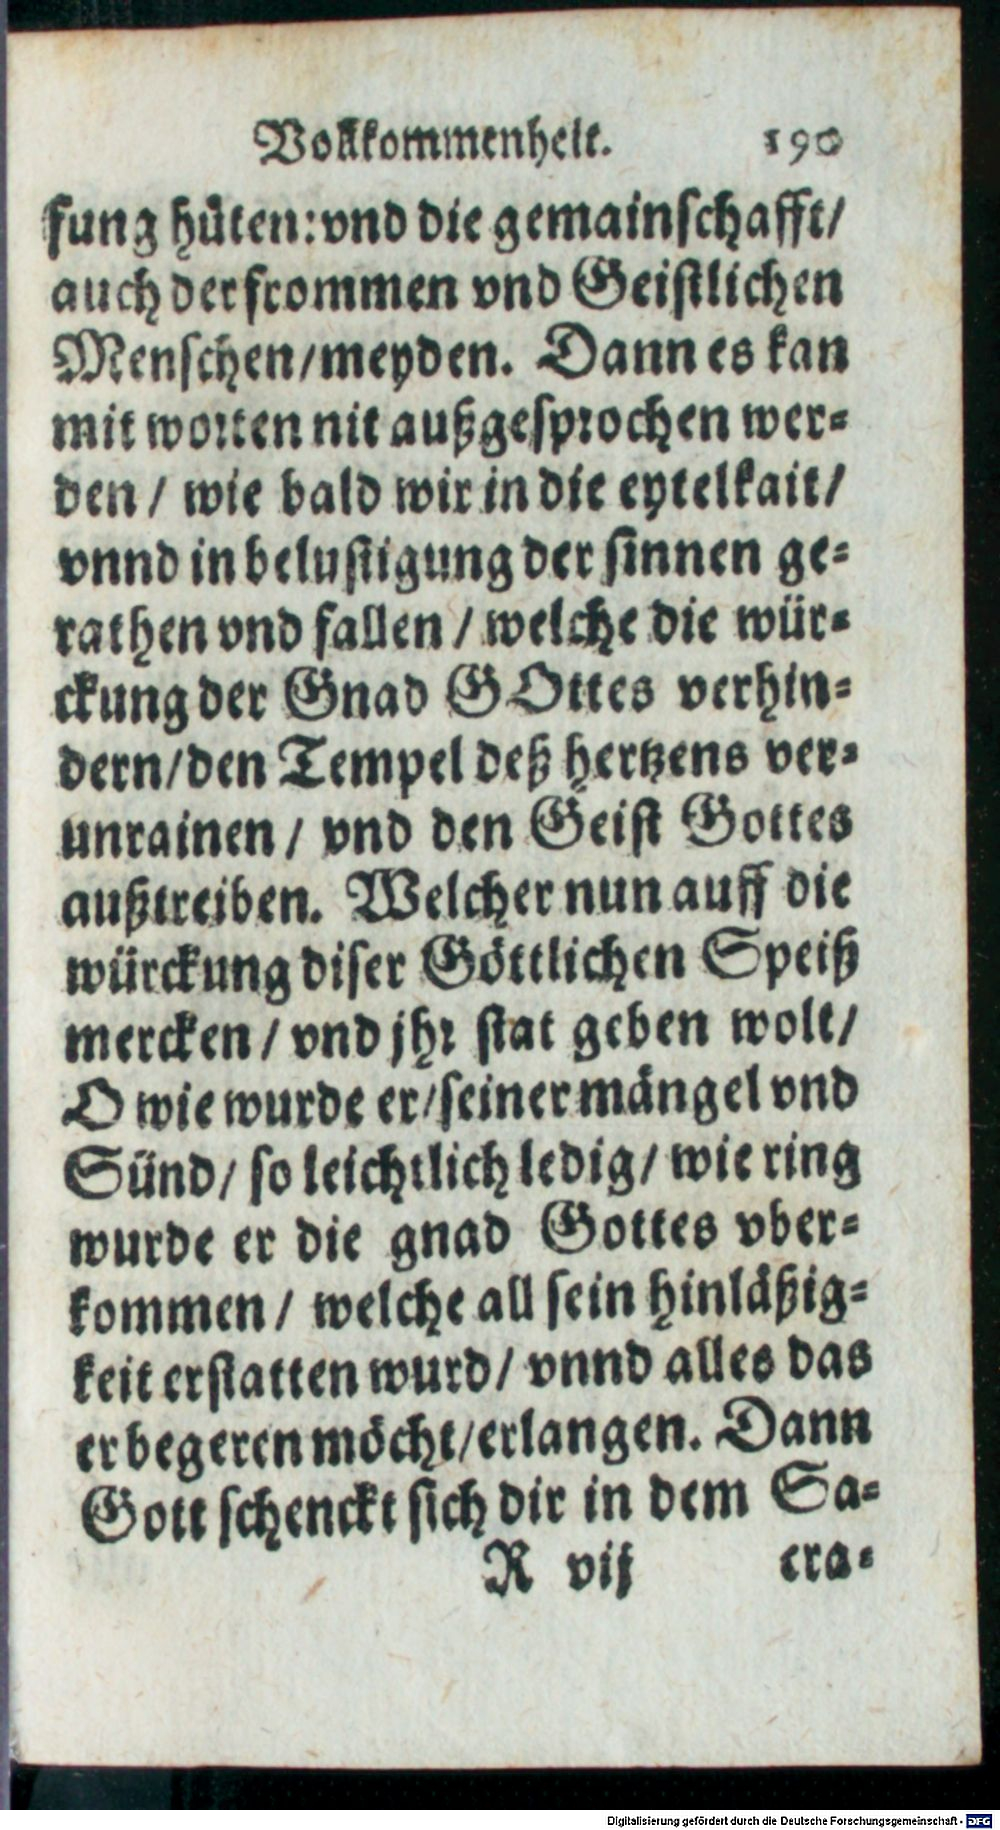 Vollkommenheit. 190
fung hüten: vnd die gemainschafft/
auch der frommen vnd Geistlichen
Menschen/meyden. Dann es kan
mit worten nit außgesprochen wer-
den/ wie bald wir in die eytelkait/
vnnd in belustigung der sinnen ge-
rathen vnd fallen/ welche die wür-
ckung der Gnad GOttes verhin-
dern/den Tempel deß hertzens ver-
unrainen/ vnd den Geist Gottes
außtreiben. Welcher nun auff die
würckung diser Göttlichen Speiß
mercken/ vnd jhr stat geben wolt/
O wie wurde er/seiner mängel vnd
Sünd/ so leichtlich ledig/ wie ring
wurde er die gnad Gottes vber-
kommen/ welche all sein hinläßig-
keit erstatten wurd/ vnnd alles das
er begeren möcht/erlangen. Dann
Gott schenckt sich dir in dem Sa-
R vij cra-
Digitalisierung gefördert durch die Deutsche Forschungsgemeinschaft - DFG